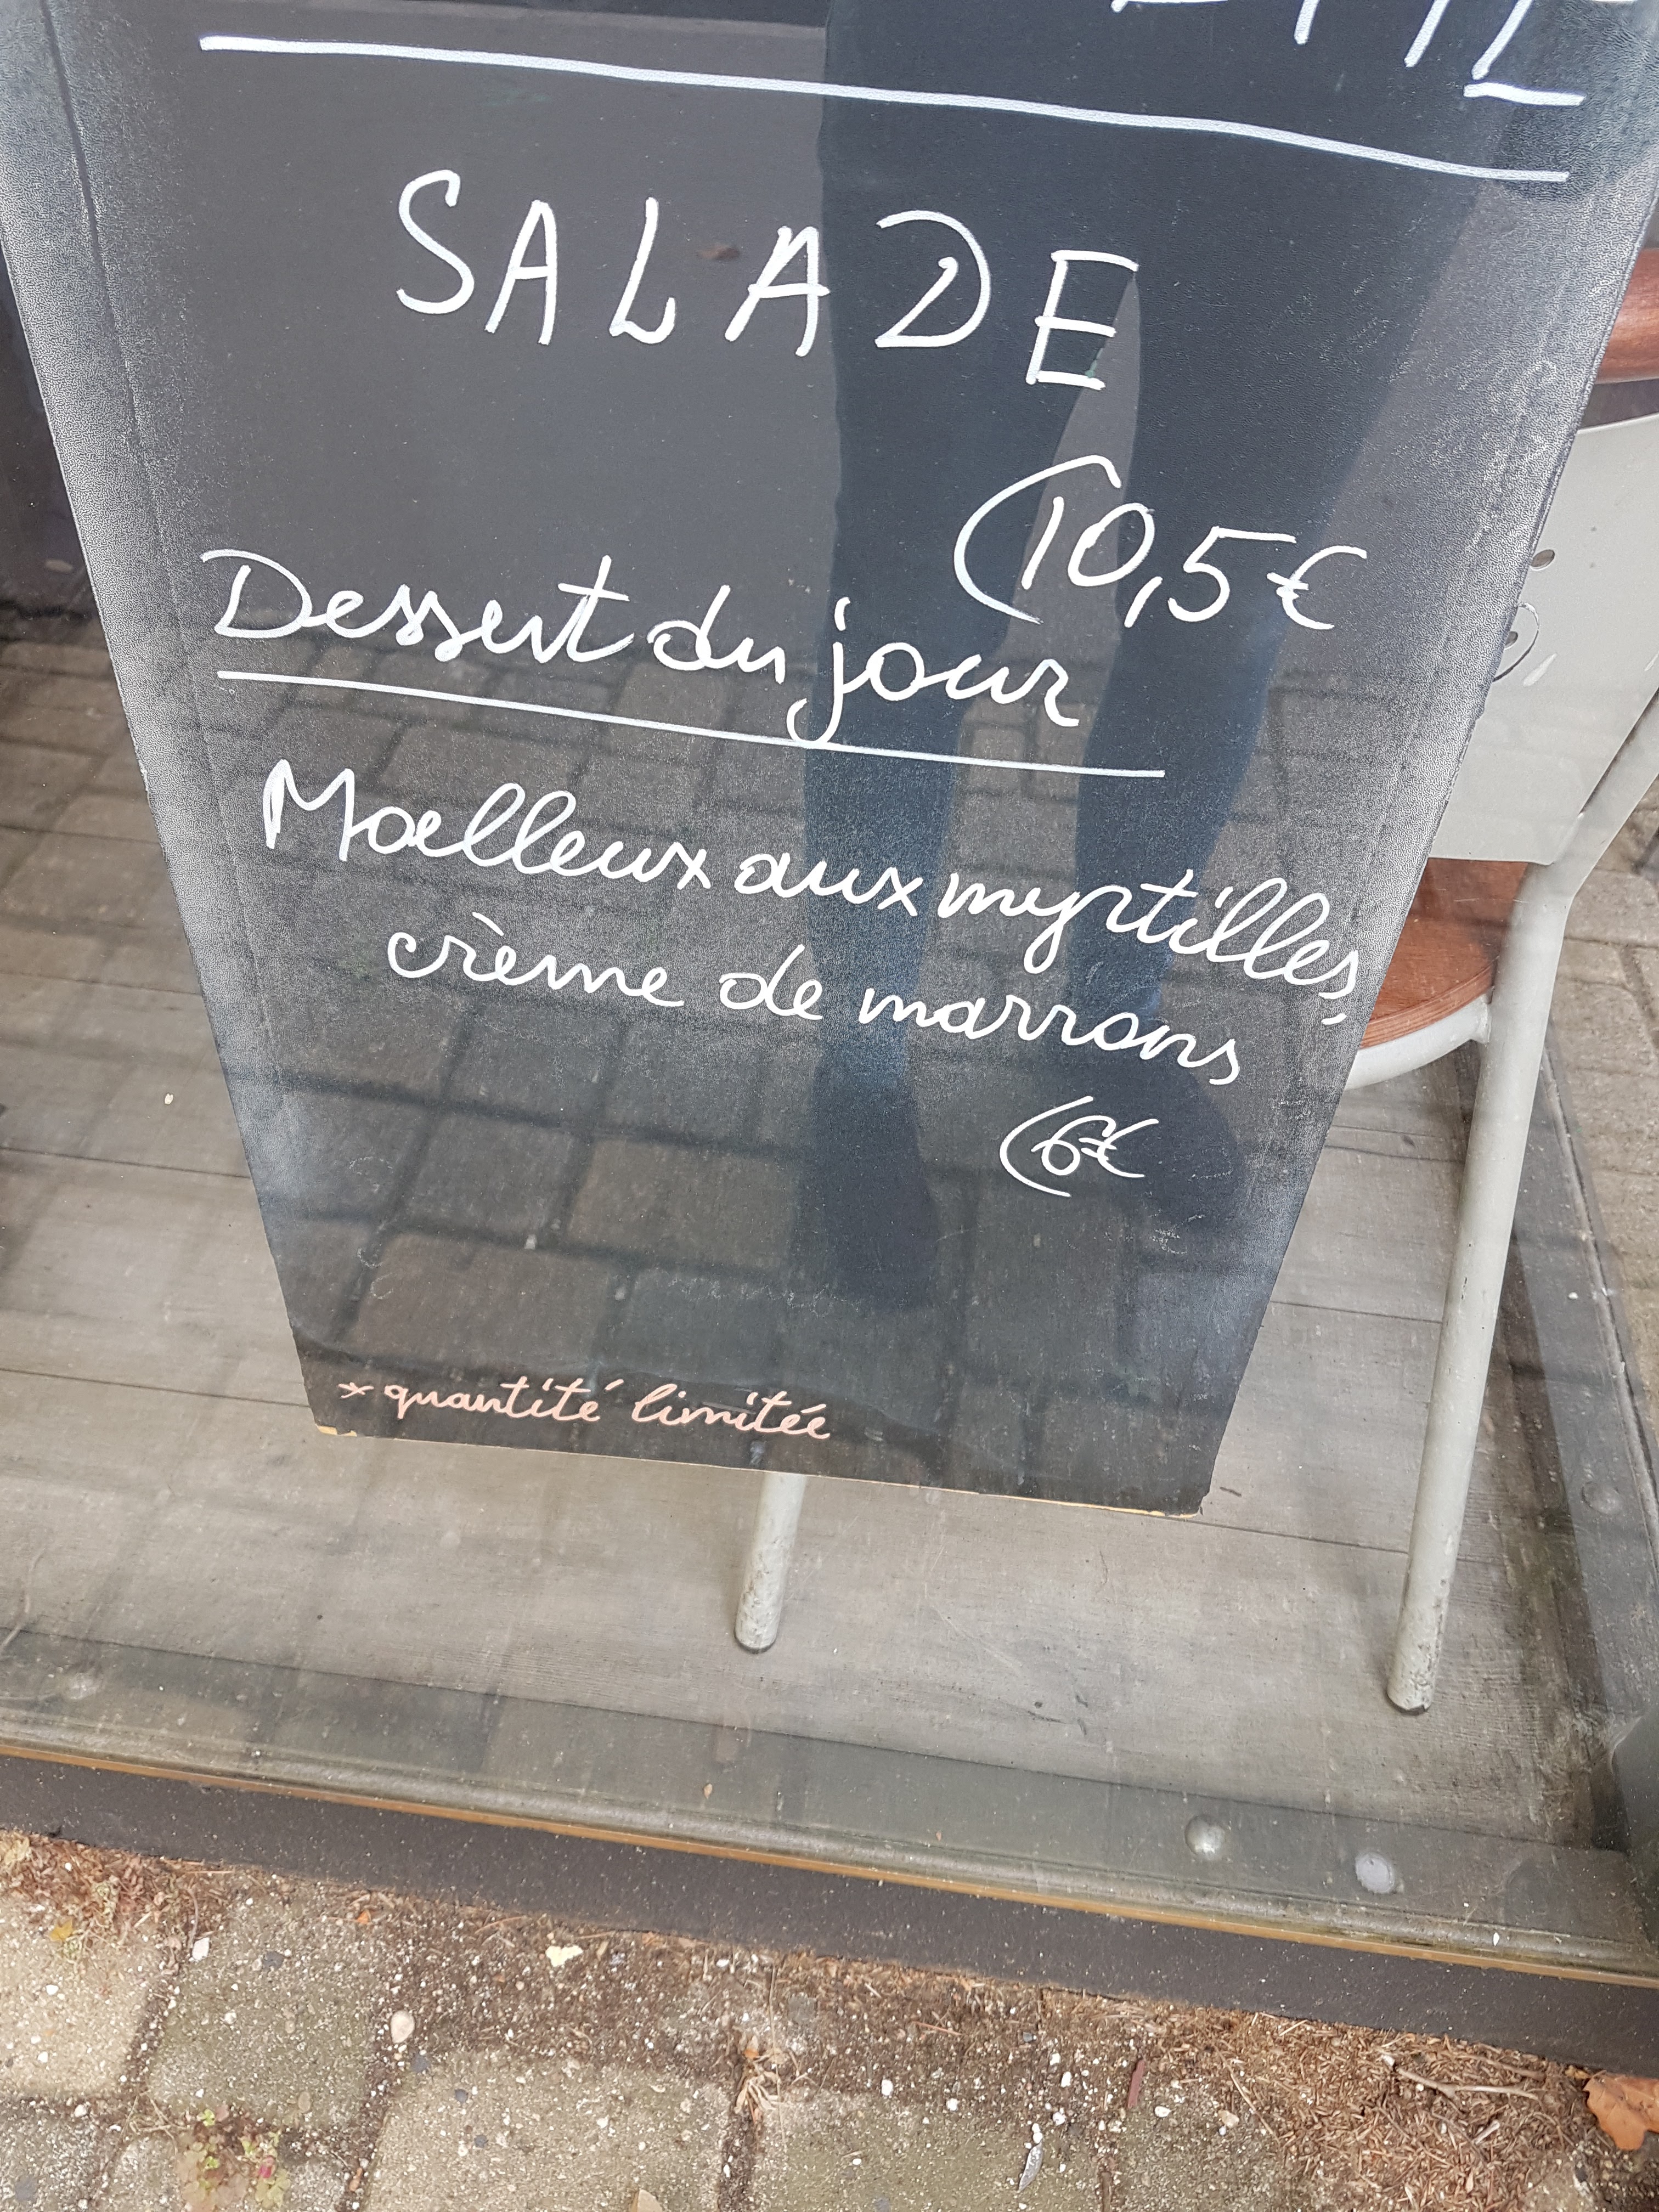 SALADE
(10,5€
Dessert du jour
Moelleux aux myrtilles,
crème de marrons
(6€
* quantité limitée